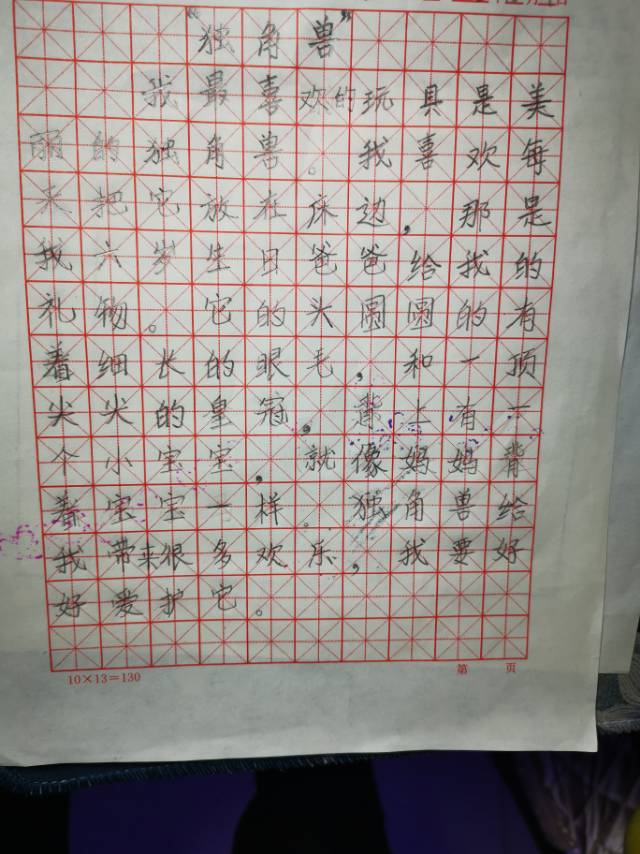 “独角兽”
我最喜欢的玩具是美
丽的独角兽。我喜欢每
天把它放在床边，那是
我六岁生日爸爸给我的
礼物。它的头圆圆的有
着细长的眼毛，和一顶
尖尖的皇冠。背上有一
个小宝宝，就像妈妈背
着宝宝一样。独角兽给
我带来很多欢乐，我要好
好爱护它。
10×13=130 第 页